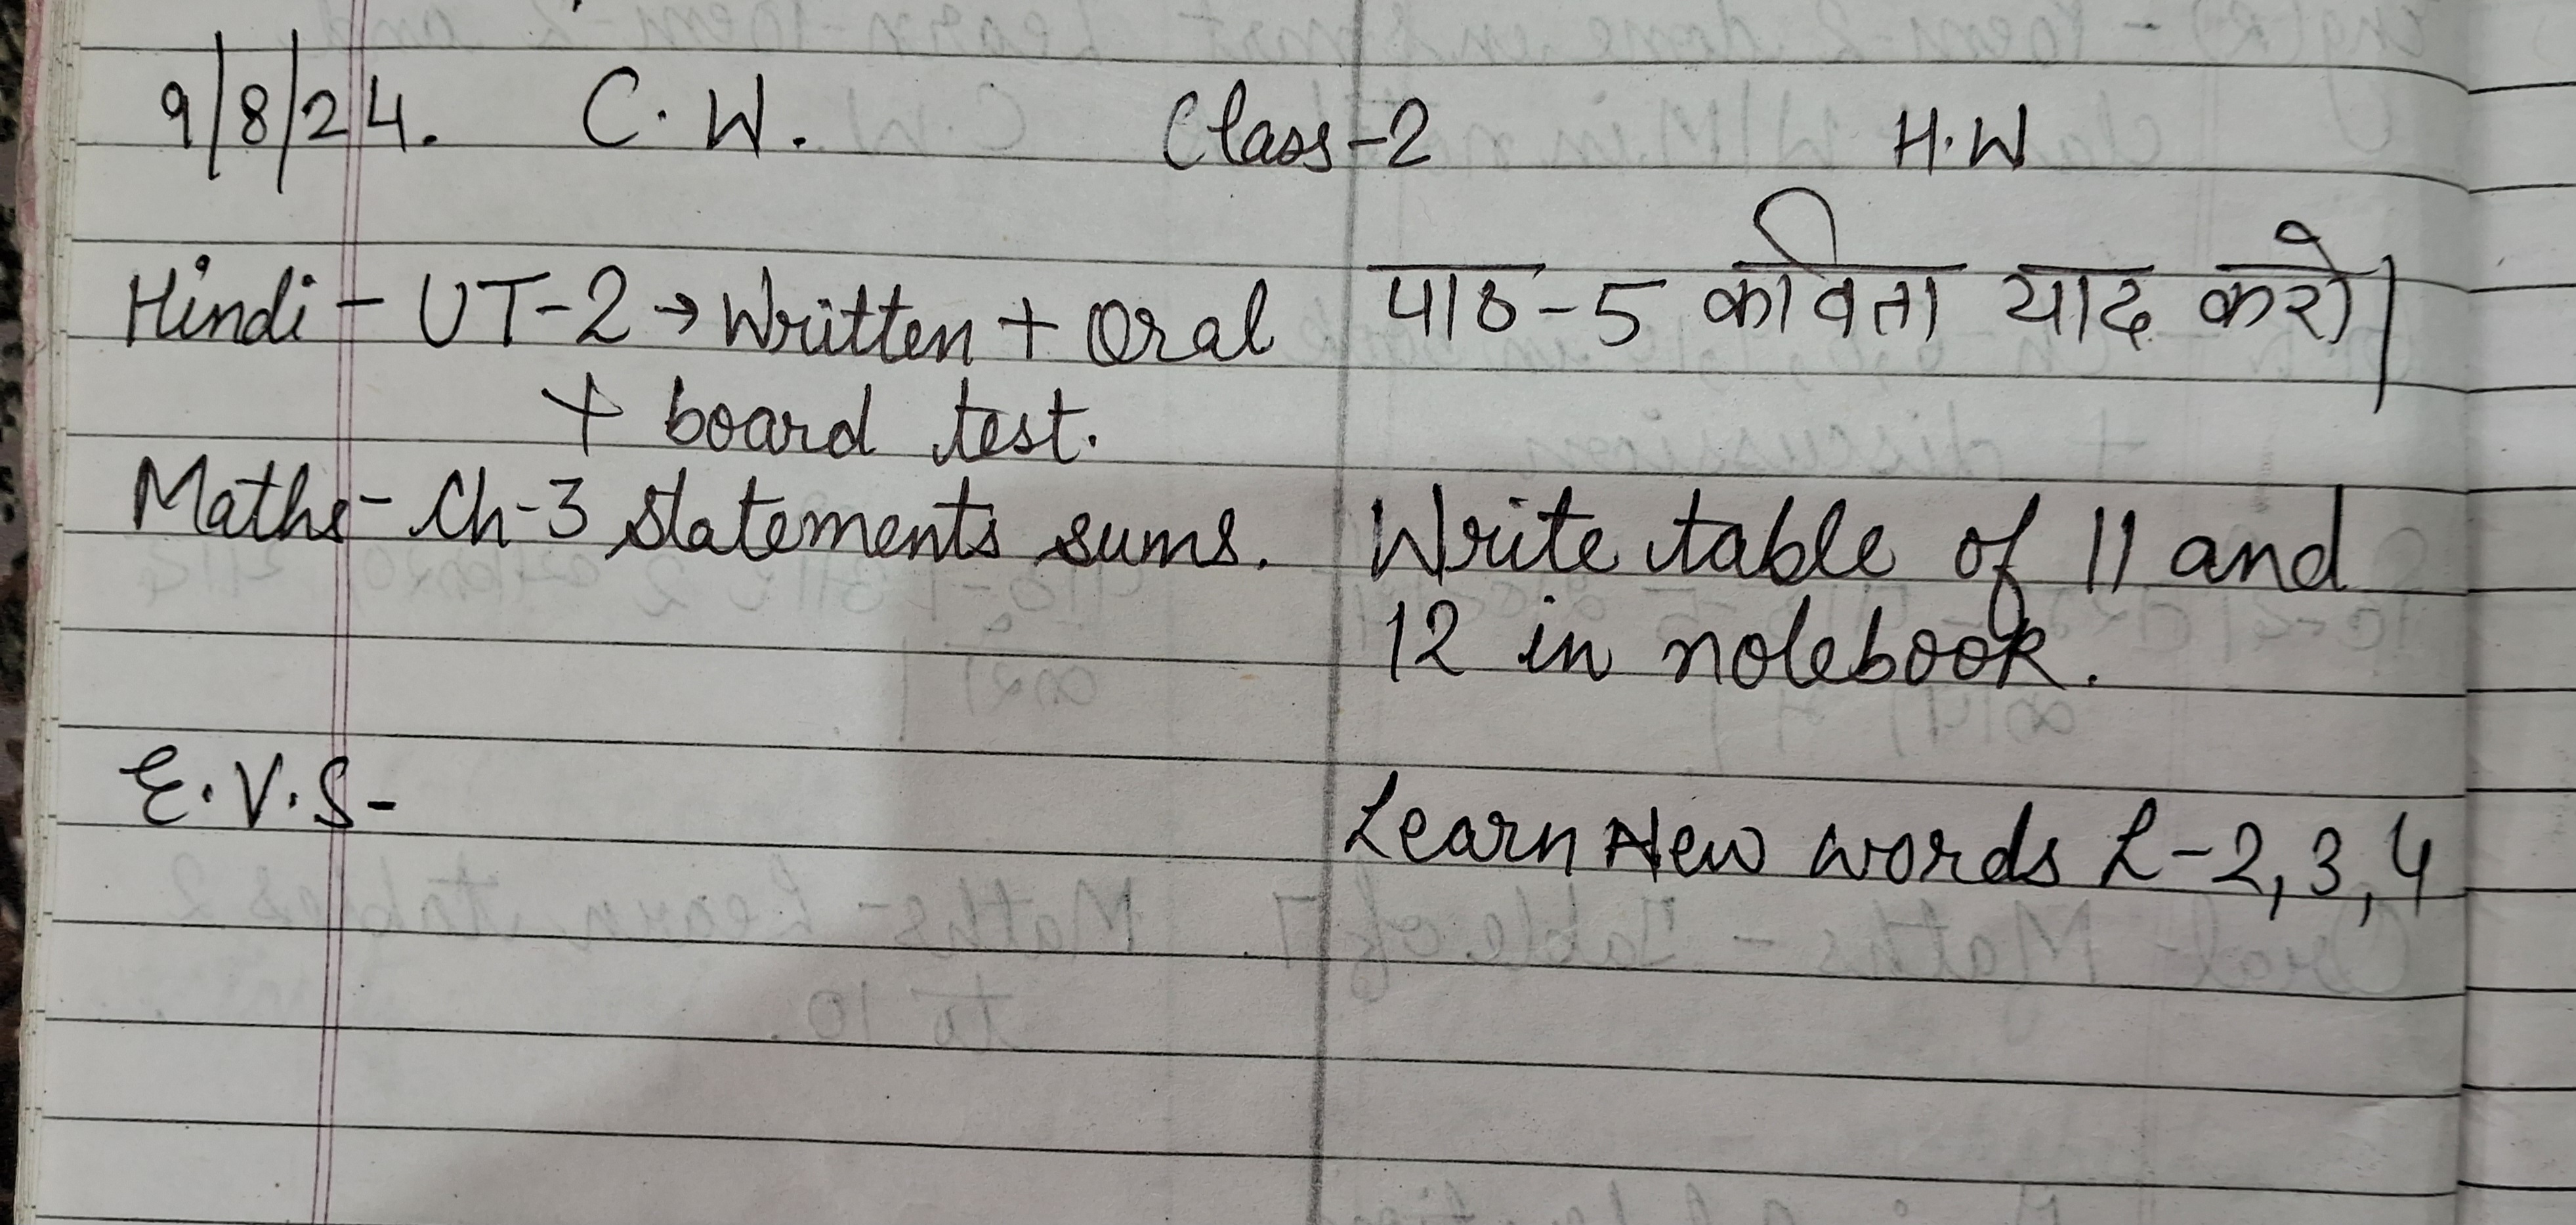 9/8/24. C.W. Class-2 H.W
Hindi - UT-2 → Written + Oral पाठ-5 कविता याद करो।
+ board test.
Maths - Ch-3 Statements sums. Write table of 11 and
12 in notebook.
E.V.S- Learn New words L-2,3,4